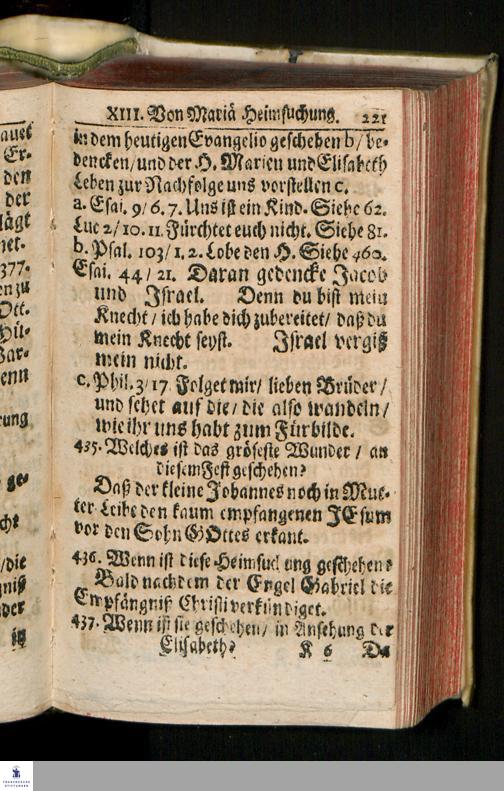 XIII. Von Mariä Heimsuchung. 221
in dem heutigen Evangelio geschehen b/ be-
dencken/ und der H. Marien und Elisabeth
Leben zur Nachfolge uns vorstellen c.
a. Esai. 9/ 6. 7. Uns ist ein Kind. Siehe 62.
Luc 2/ 10. 11. Fürchtet euch nicht. Siehe 81.
b. Psal. 103/ 1. 2. Lobe den H. Siehe 460.
Esai. 44/ 21. Daran gedencke Jacob
und Israel. Denn du bist mein
Knecht/ ich habe dich zubereitet/ daß du
mein Knecht seyst. Israel vergiß
mein nicht.
c. Phil. 3/ 17 Folget mir/ lieben Brüder/
und sehet auf die/ die also wandeln/
wie ihr uns habt zum Fürbilde.
435. Welches ist das gröseste Wunder/ an
diesem Fest geschehen?
Daß der kleine Johannes noch in Mut-
ter Leibe den kaum empfangenen JEsum
vor den Sohn GOttes erkant.
436. Wenn ist diese Heimsuchung geschehen?
Bald nachdem der Engel Gabriel die
Empfängniß Christi verkündiget.
437. Wenn ist sie geschehen/ in Ansehung der
Elisabeth?
K 6 Da
auet
Er-
den
der
lägt
net.
377.
en zu
Ott.
Hü-
Bar-
enn
rung
ge-
cht
/die
gniß
der
in
FRANCKESCHE
STIFTUNGEN